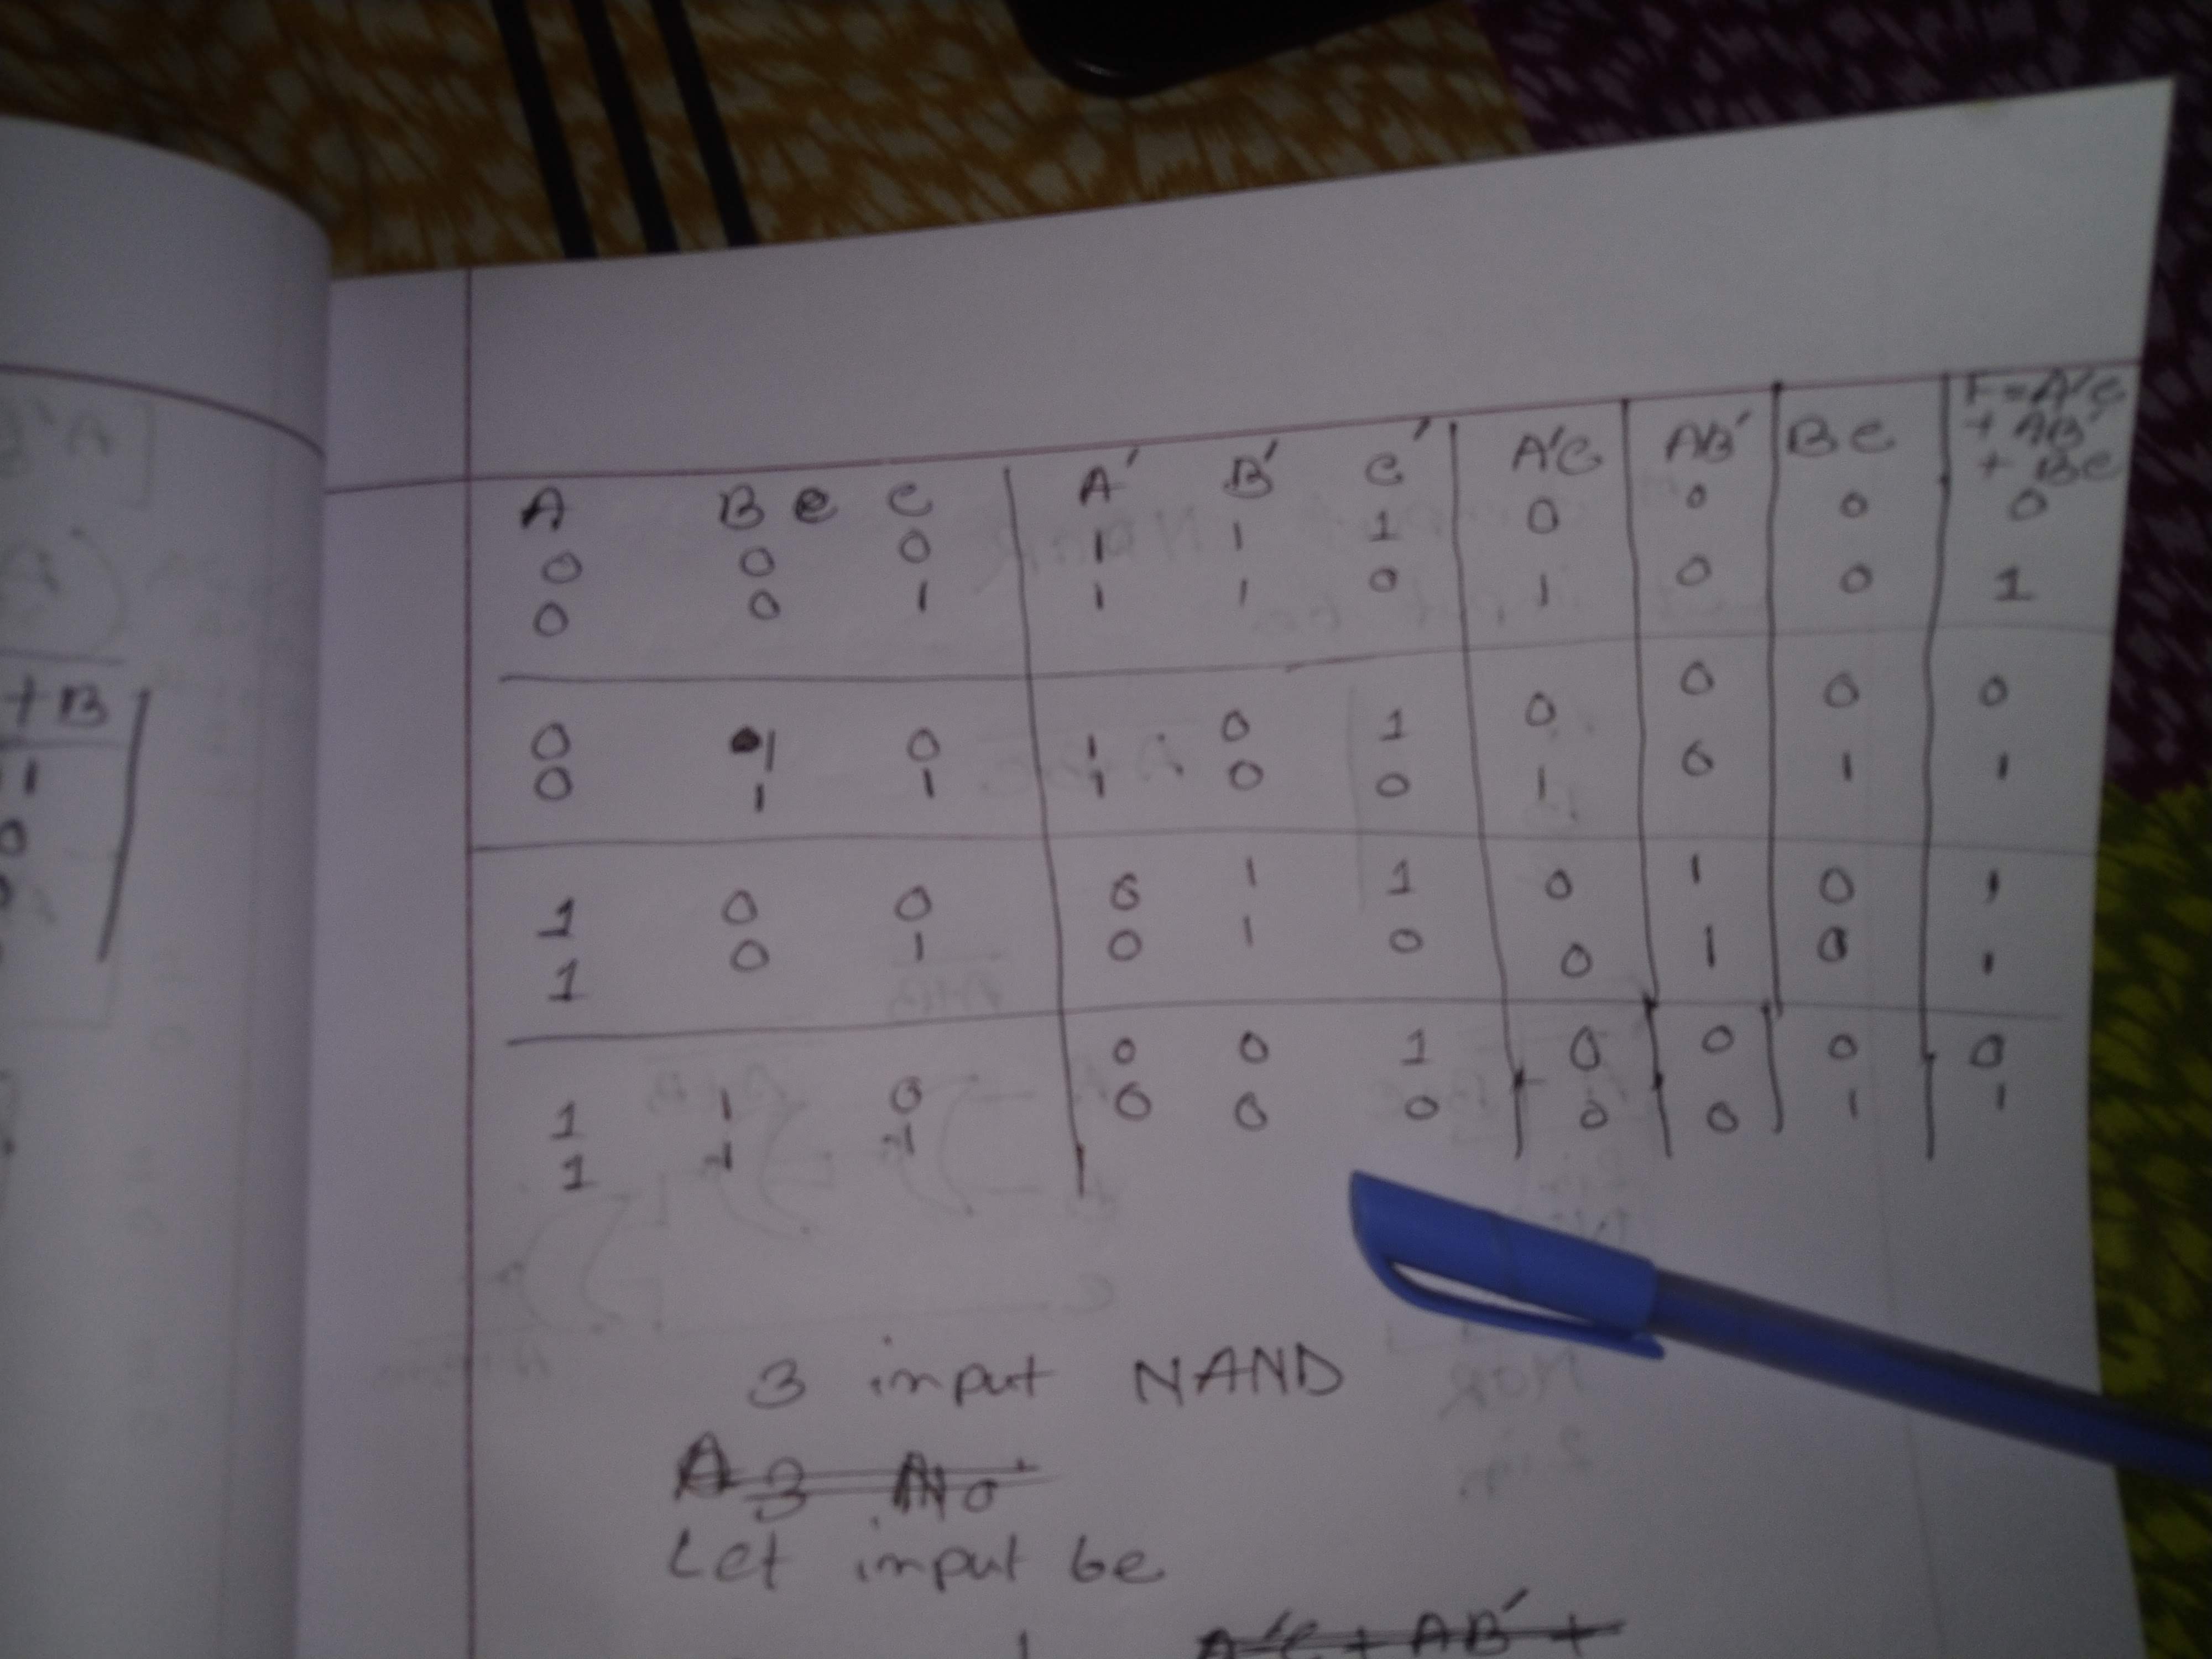 A B C A' B' C' A'C AB' BC F=A'C
+ AB'
+ BC
0 0 0 1 1 1 0 0 0 0
0 0 1 1 1 0 1 0 0 1
0 1 0 1 0 1 0 0 0 0
0 1 1 1 0 0 1 0 1 1
1 0 0 0 1 1 0 1 0 1
1 0 1 0 1 0 0 1 0 1
1 1 0 0 0 1 0 0 0 0
1 1 1 0 0 0 0 0 1 1
3 input NAND
Let input be
A'C + AB' +
+B
1
0